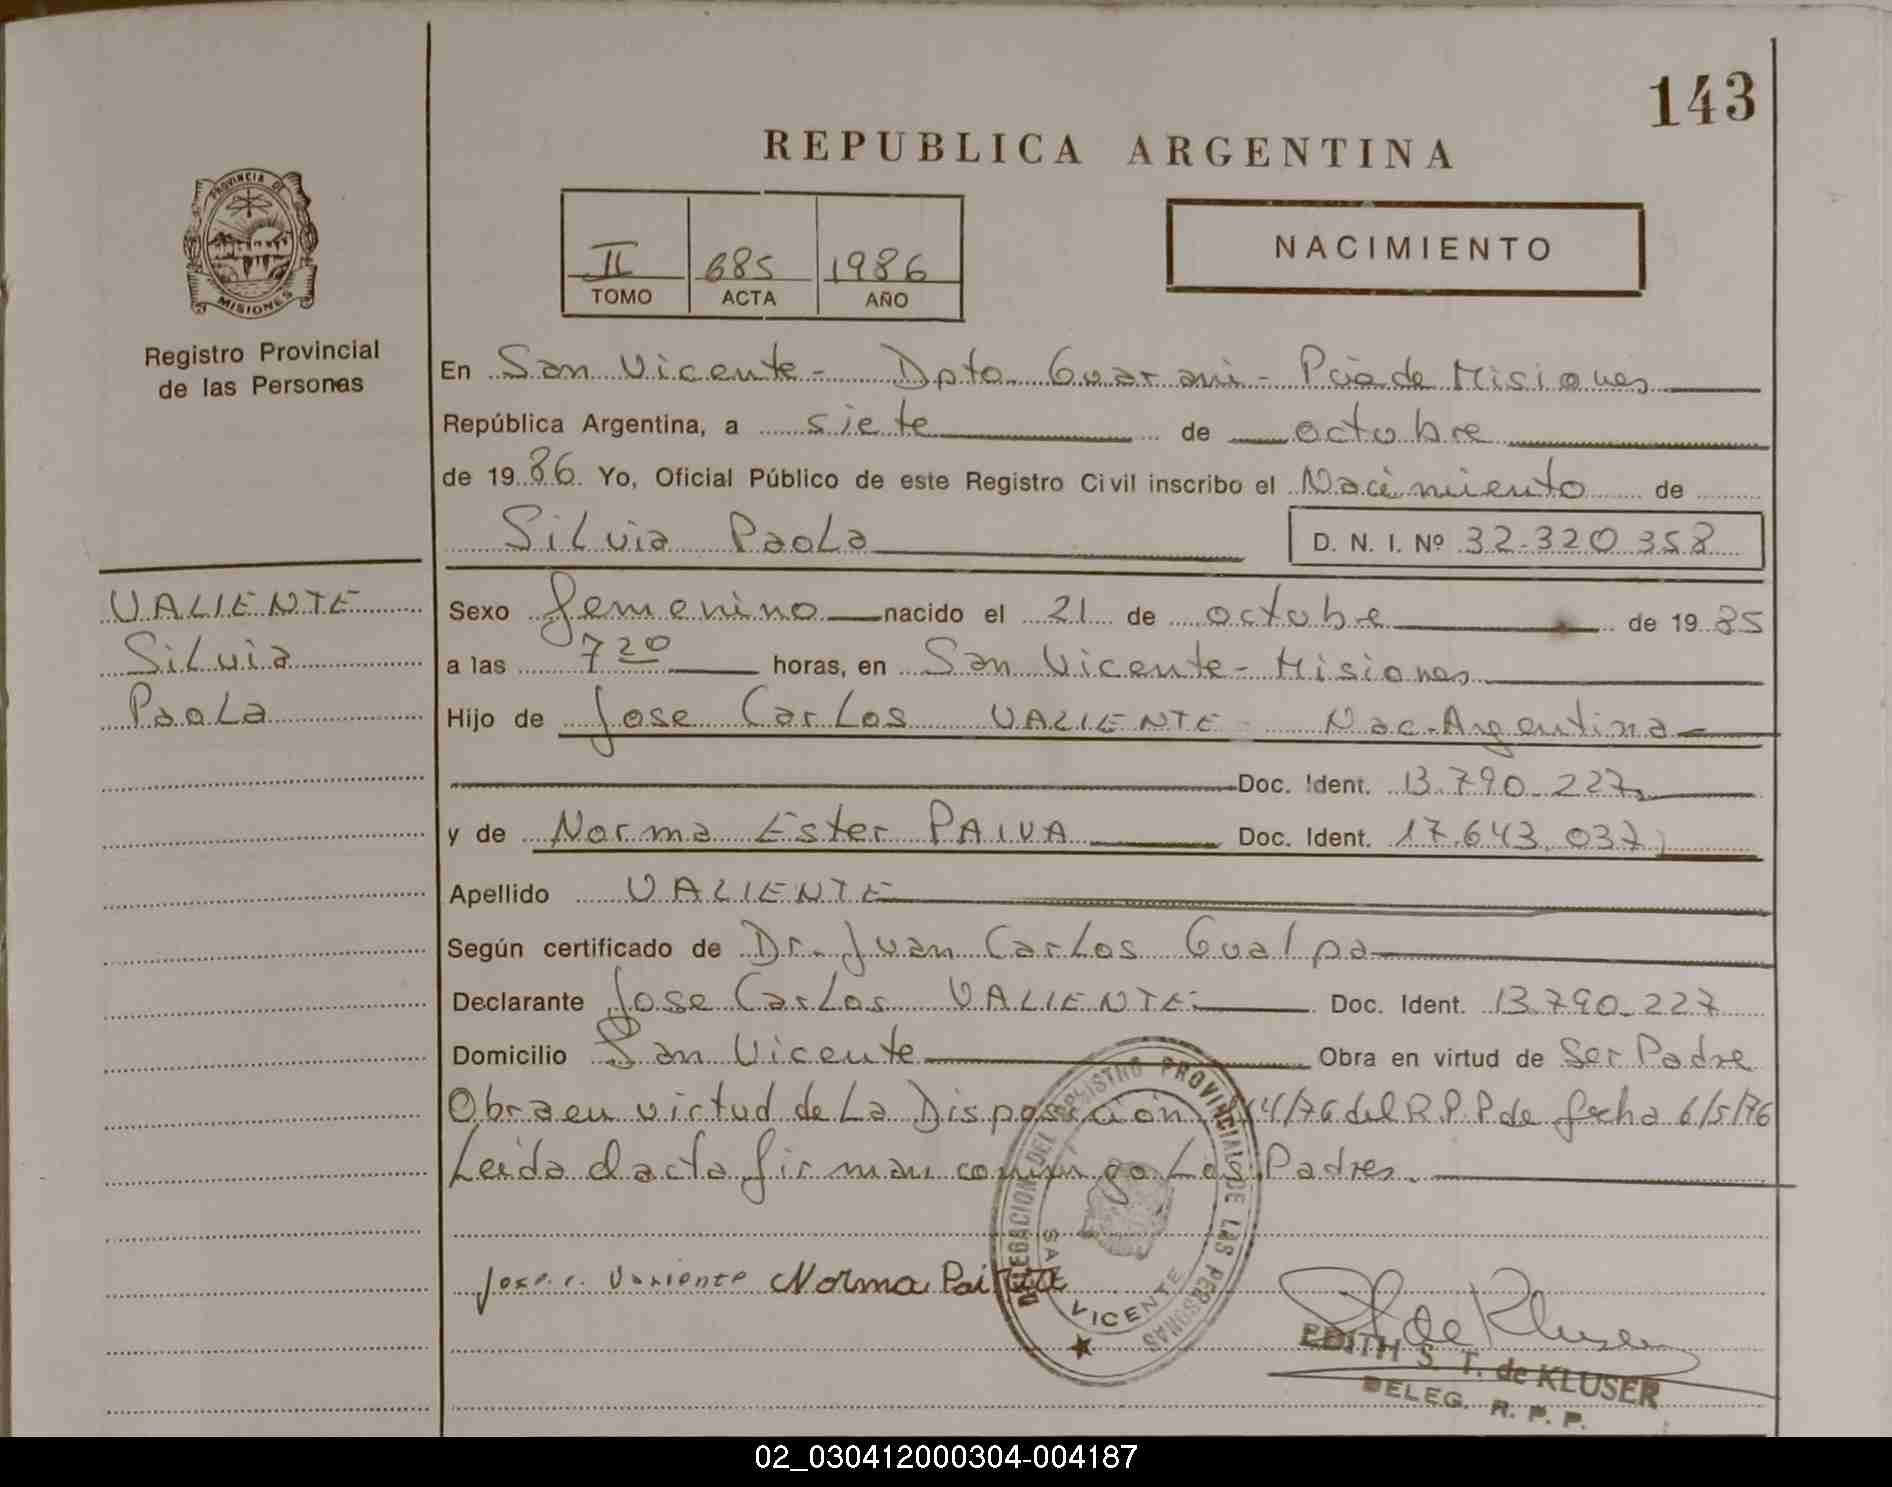 143
REPUBLICA ARGENTINA
PROVINCIA DE
MISIONES
Registro Provincial
de las Personas
II 685 1986
TOMO ACTA AÑO
NACIMIENTO
En San Vicente - Dpto Guarani - Pcia de Misiones
República Argentina, a siete de octubre
de 1986. Yo, Oficial Público de este Registro Civil inscribo el Nacimiento de
Silvia Paola D. N. I. Nº 32.320.358
VALIENTE
Silvia
Paola
Sexo femenino nacido el 21 de octubre de 1985
a las 7 20 horas, en San Vicente - Misiones
Hijo de Jose Carlos VALIENTE - Nac. Argentina
Doc. Ident. 13.790.227
y de Norma Ester PAIVA Doc. Ident. 17.643.037
Apellido VALIENTE
Según certificado de Dr. Juan Carlos Gualpa
Declarante Jose Carlos VALIENTE Doc. Ident. 13.790.227
Domicilio San Vicente Obra en virtud de Ser Padre
Obra en virtud de La Disposición 14/76 del R.P.P de fecha 6/5/76
Leida el acta firman conmigo Los Padres.
DELEGACION DEL REGISTRO PROVINCIAL DE LAS PERSONAS
SAN VICENTE
Jose c. Valiente Norma Paiva
de Kluser
EDITH S. T. de KLUSER
DELEG. R. P. P.
02_030412000304-004187